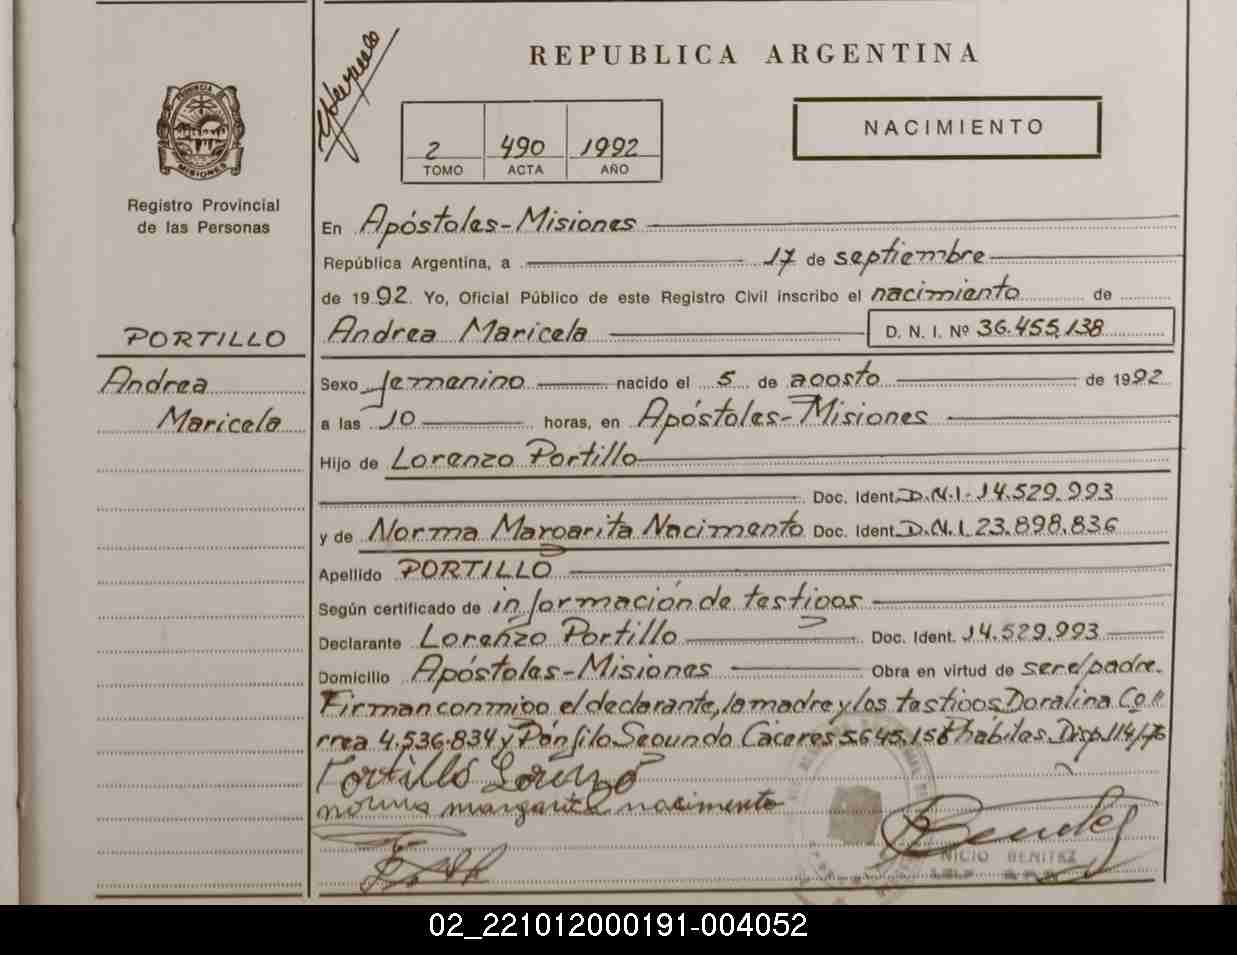 REPUBLICA ARGENTINA
NACIMIENTO
2 490 1992
TOMO ACTA AÑO
PROVINCIA DE MISIONES
Registro Provincial
de las Personas
En Apóstoles-Misiones
República Argentina, a 17 de septiembre
de 1992. Yo, Oficial Público de este Registro Civil inscribo el nacimiento de
PORTILLO
Andrea
Maricela
Andrea Maricela D. N. I. Nº 36.455.138
Sexo femenino nacido el 5 de agosto de 1992
a las 10 horas, en Apóstoles-Misiones
Hijo de Lorenzo Portillo
Doc. Ident. D.N.I. 14.529.993
y de Norma Margarita Nacimento Doc. Ident. D.N.I. 23.898.836
Apellido PORTILLO
Según certificado de información de testigos
Declarante Lorenzo Portillo Doc. Ident. 14.529.993
Domicilio Apóstoles-Misiones Obra en virtud de ser el padre.
Firman conmigo el declarante, la madre y los testigos Doralina Co
rrea 4.536.834 y Pánfilo Segundo Cáceres 5.645.158 hábiles Disp. 114/76
Portillo Lorenzo
norma margarita nacimento
NICIO BENITEZ
02_221012000191-004052